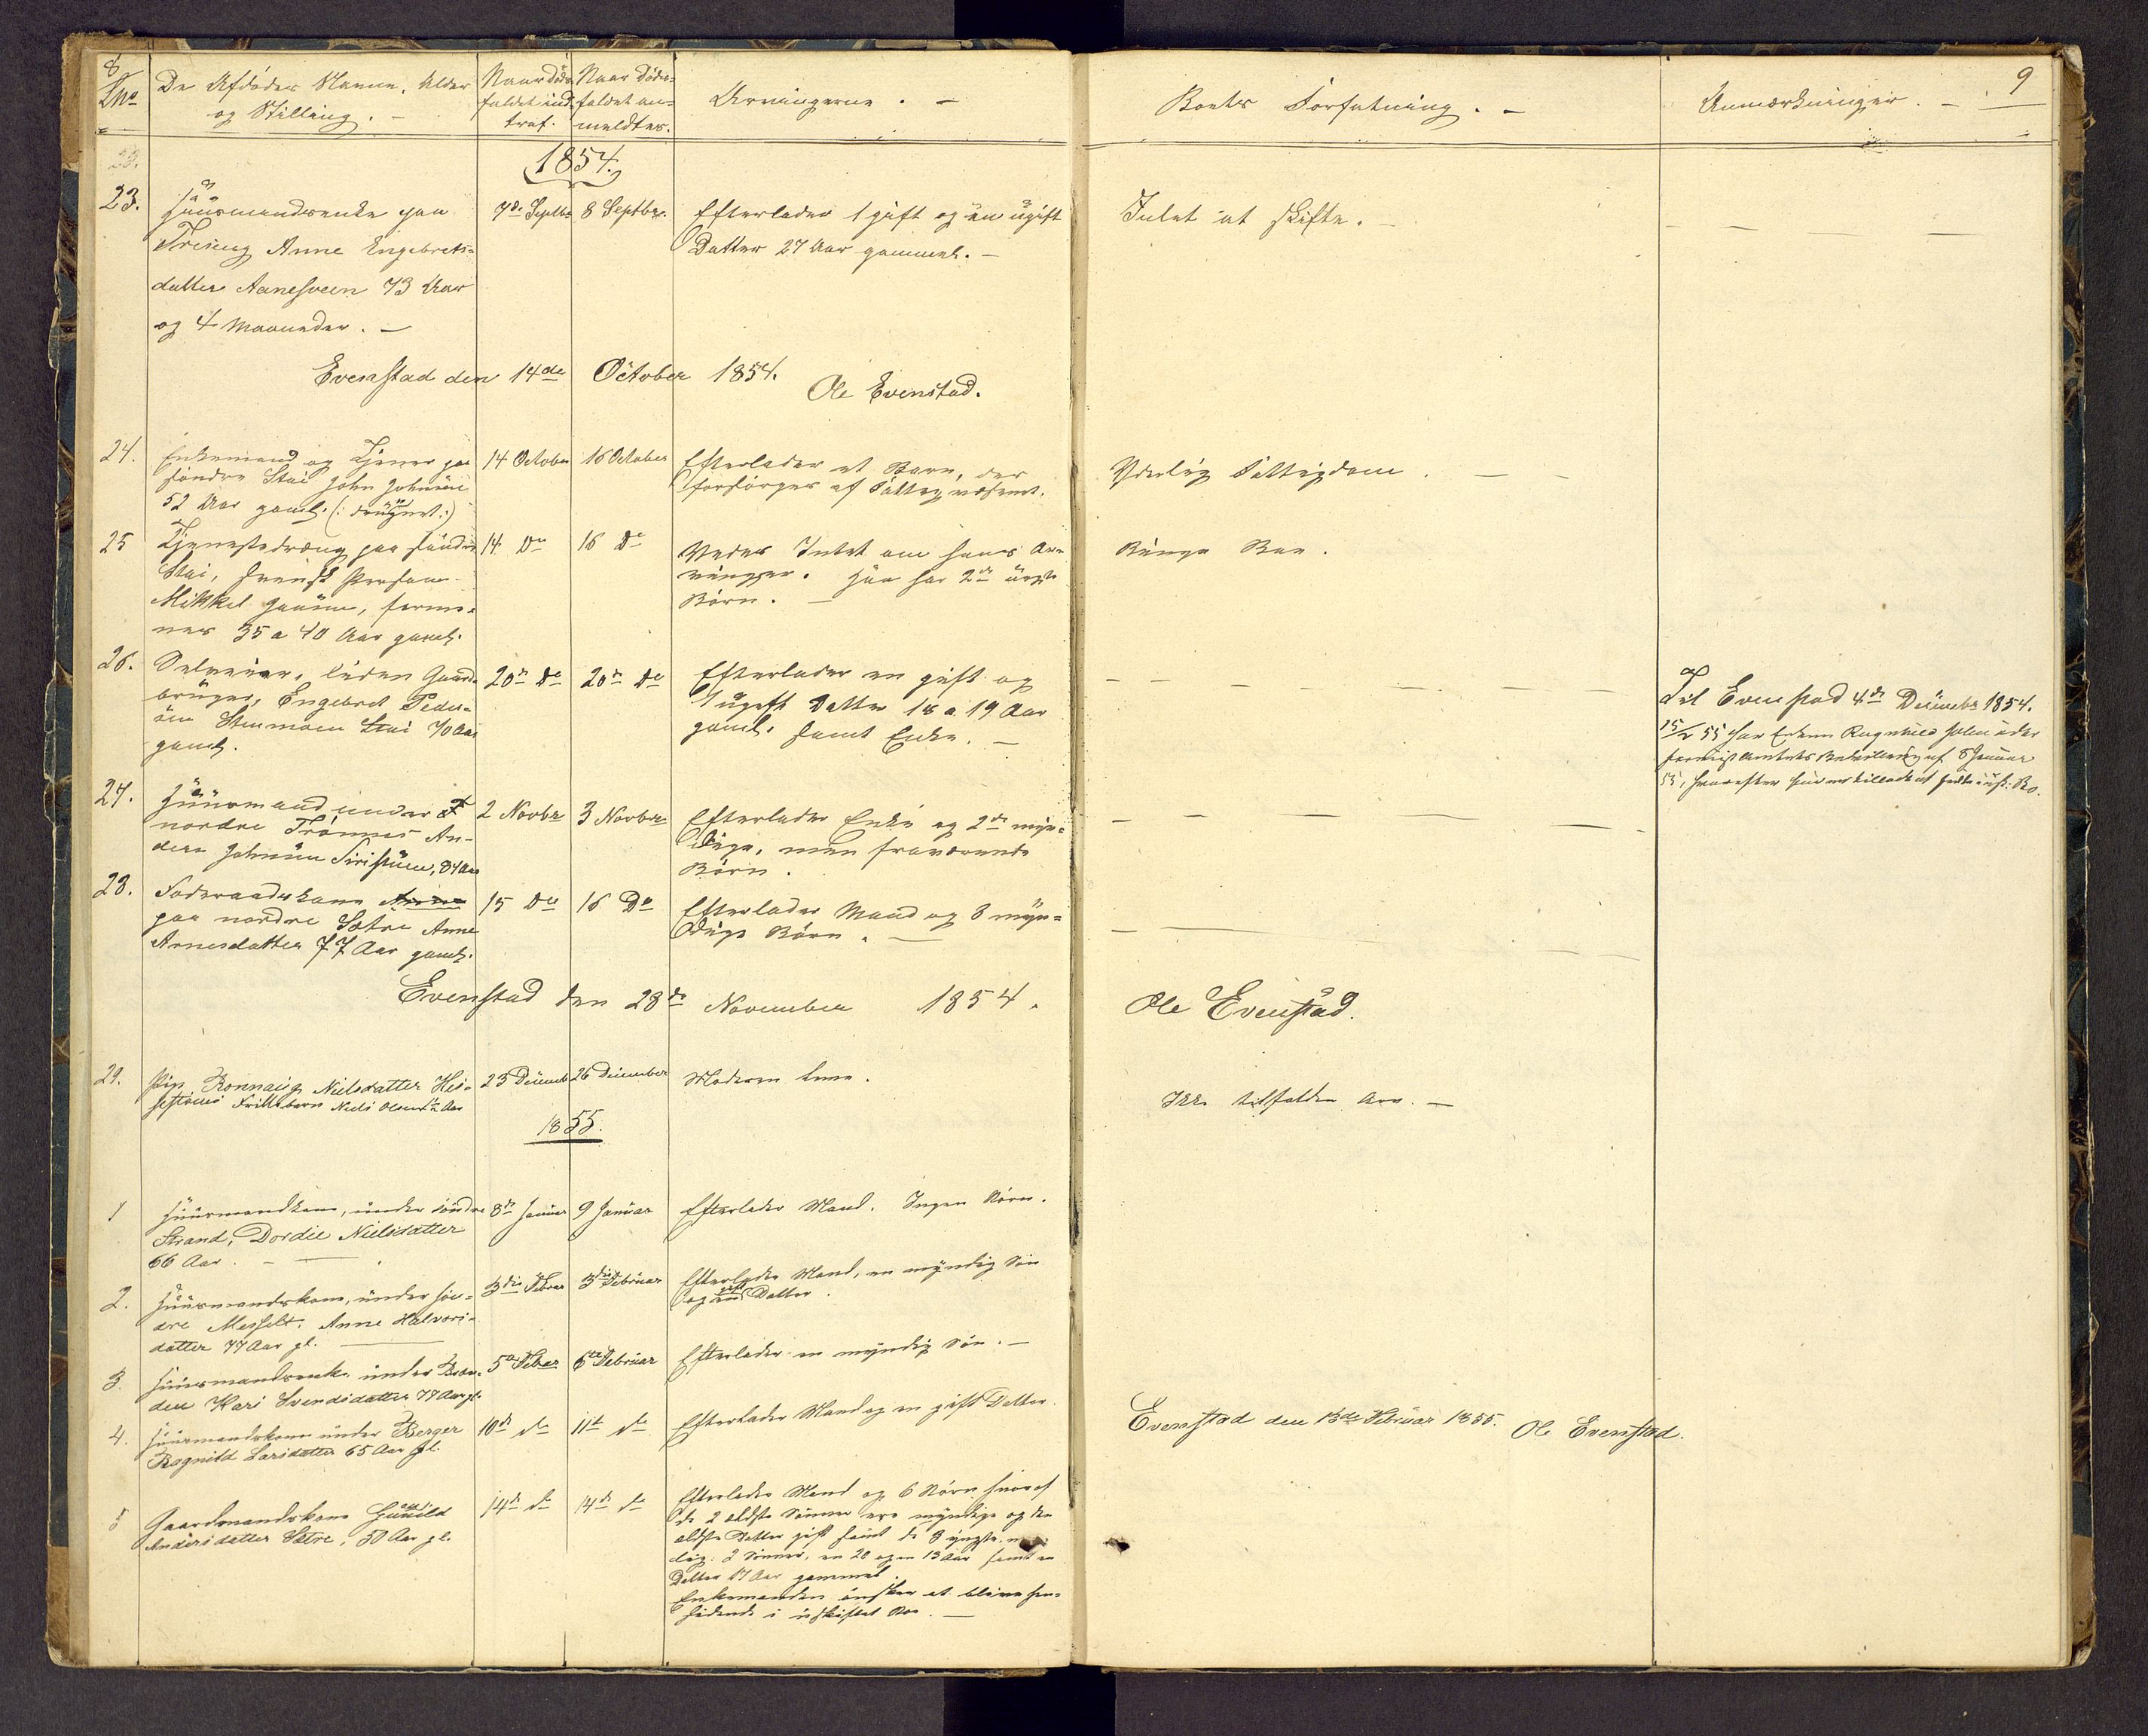 8
9
No
De Afdødes Navne, Alder
og Stilling. -
Naar Døds-
faldet ind-
traf.
Naar Døds-
faldet an-
meldtes.
Arvingerne. -
Boets Forfatning. -
Anmærkninger. -
1854.
23.
Huusmandsenke paa
Trøeng Anne Engebrets-
datter Aanesveen 73 Aar
og 4 Maaneder. -
7de Septbr
8 Septbr.
Efterlader 1 gift og en ugift
Datter 27 Aar gammel. -
Intet at skifte. -
Evenstad den 14de October 1854.
Ole Evenstad.
24.
Enkemand og Tjener paa
søndre Stai John Johnsen
52 Aar gaml. (: druknet :)
14 October
16 October
Efterlader et Barn, der
forsørges af Fattigvæsenet.
Yderlig Fattigdom. -
25
Tjenestedreng paa søndre
Stai, svensk Person
Mikkel Jansen, forme-
nes 35 a 40 Aar gaml.
14 Do
16 Do
Vedes Intet om hans Ar-
vinger. Han har 2de uægte
Børn. -
Ringe Boe.
26.
Selveier, liden Gaard-
bruger, Engebret Peder-
sen Stenmoen Stai 70 Aar
gaml.
20de Do
20de Do
Efterlader en gift og
1 ugift Datter 18 a 19 Aar
gaml. samt Enke. -
Til Evenstad 4de Decembr 1854.
15/2 55 har Enken Ragnhild Holm
Amtets Bevilling af 8 Januar
55, hvorefter hun er tilladt at sidde i usk: Bo.
27.
Huusmand under
nordre Trønnes An-
ders Johnsen 84 Aar
2 Novbr
3 Novbr
Efterlader Enke og 2de myn-
dige, men fraværende
Børn.
28.
Foderaadskone
paa nordre Sætre Anne
Arnesdatter 77 Aar gaml.
15 Do
16 Do
Efterlader Mand og 3 myn-
dige Børn. -
Evenstad den 28de November 1854.
Ole Evenstad.
29.
Pige Ronnaug Nielsdatter
Barn Niels Olsen 1/2 Aar
23 Decemb
26 December
Moderen leve.
Ikke tilfalden Arv. -
1855.
1
Huusmandskone, under søndre
Strand, Dordie Nielsdatter
66 Aar. -
8de Januar
9 Januar
Efterlader Mand. Ingen Børn.
2.
Huusmandskone, under søn-
dre Messelt, Anne Halvors-
datter 77 Aar gl.
3die Febrar
3die Februar
Efterlader Mand, en myndig Søn
og en gift Datter.
3.
Huusmandsenke under Bran-
den Kari Svendsdatter 77 Aar gl.
5te Febrar
6te Februar
Efterlader en myndig Søn. -
4.
Huusmandskone under Berger
Ragnild Larsdatter 65 Aar gl.
10de do
11te do
Efterlader Mand og en gift Datter.
Evenstad den 13de Februar 1855.
Ole Evenstad.
5
Gaardmandskone Gunild
Andersdatter Sætre, 50 Aar gl.
14de do
14de do
Efterlader Mand og 6 Børn hvoraf
de 2 ældste Sønner ere myndige og den
ældste Datter gift samt de 3 yngste
2 Sønner, en 20 og en 13 Aar samt en
Datter 17 Aar gammel.
Enkemanden ønsker at blive hen-
siddende i uskiftet Boe. -